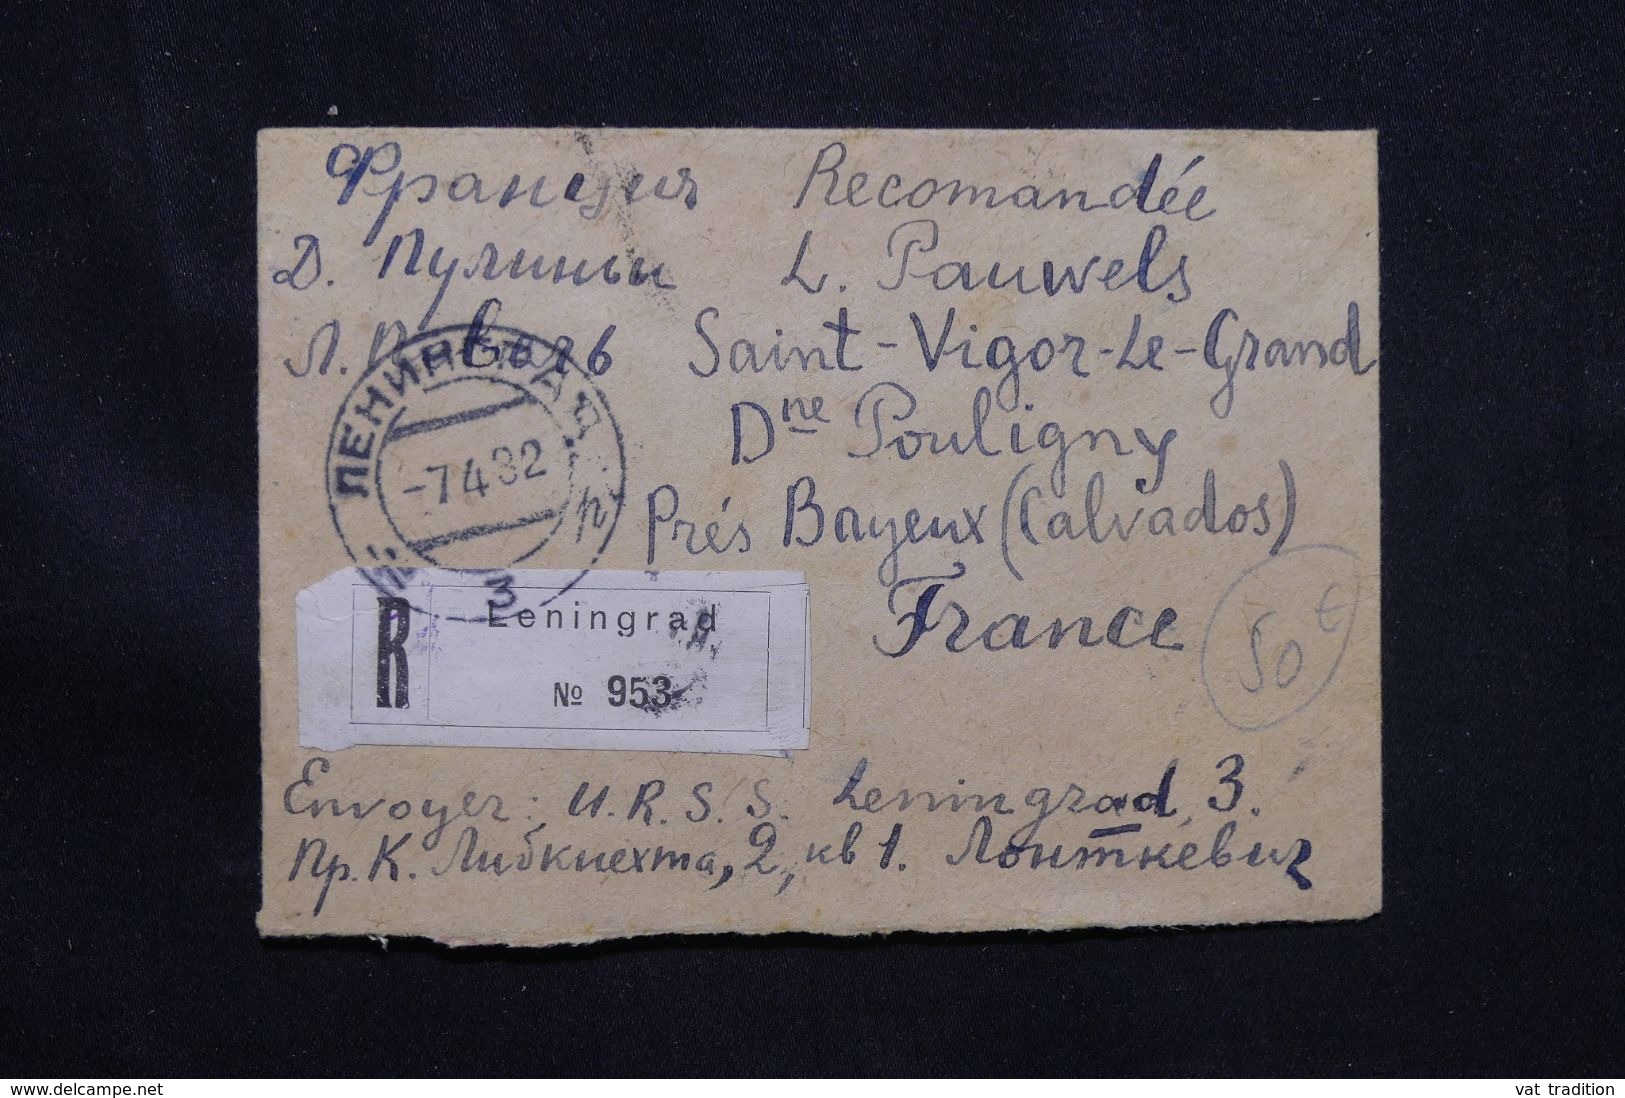 Франция Recomandée
Д. Пулиньи L. Pauwels
Л. Saint-Vigor-Le-Grand
Dne Pouligny
Prés Bayeux (Calvados)
France
50
ЛЕНИНГРАД
-7.4.32
3
R Leningrad
№ 953
Envoyer: U.R.S.S. Leningrad, 3.
Пр. К. Либкнехта, 2, кв 1. Лонткевич
www.delcampe.net vat tradition